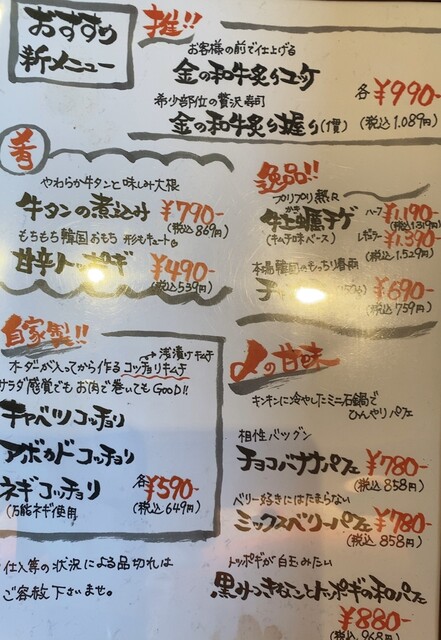 おすすめ
新メニュー
推!!
お客様の前で仕上げる
金の和牛炙りユッケ
希少部位の贅沢寿司
金の和牛炙り握り(1貫)
各 ¥990-
(税込1.089円)
肴
やわらか牛タンと味しみ大根
牛タンの煮込み ¥790-
(税込869円)
もちもち韓国おもち 形もキュート
甘辛トッポギ ¥490-
(税込539円)
逸品!!
プリプリ熱々
牛土手蠣チゲ
かき
(キムチ味ベース)
ハーフ ¥1,190-
(税込1319円)
レギュラー ¥1,390-
(税込1,529円)
本場韓国のもっちり春雨
チャ ¥690-
(税込759円)
自家製!!
浅漬けキムチ
オーダーが入ってから作るコッチョリキムチ
サラダ感覚でもお肉で巻いてもGooD!!
キャベツコッチョリ
アボカドコッチョリ
ネギコッチョリ
(万能ネギ使用)
各 ¥590-
(税込649円)
〆の甘味
キンキンに冷やしたミニ石鍋で
ひんやりパフェ
相性バツグン
チョコバナナパフェ ¥780-
(税込858円)
ベリー好きにはたまらない
ミックスベリーパフェ ¥780-
(税込858円)
トッポギが白玉みたい
黒みつきなことトッポギの和パフェ
¥880-
(税込968円)
仕入等の状況による品切れは
ご容赦下さいませ。